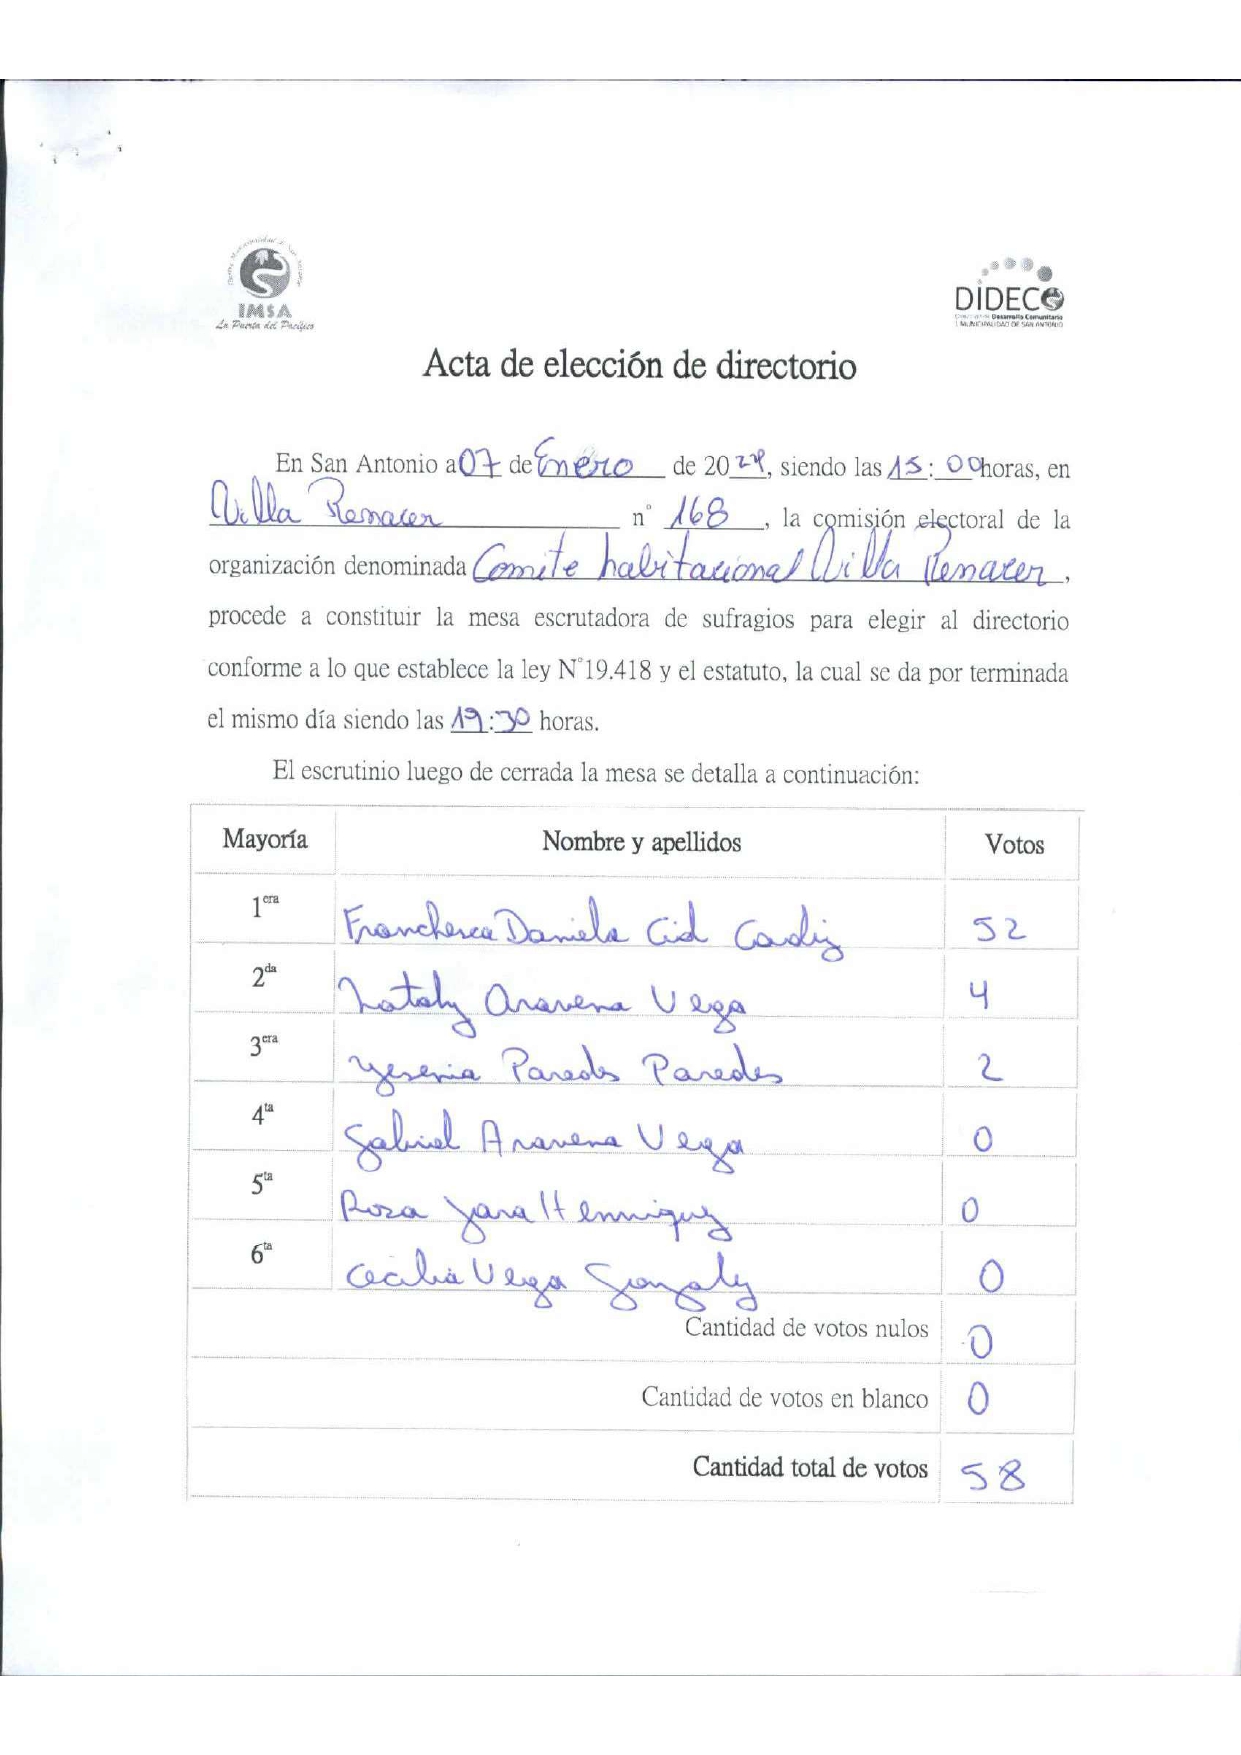 IMSA
La Puerta del Pacífico
DIDECO
Desarrollo Comunitario
I. MUNICIPALIDAD DE SAN ANTONIO
Acta de elección de directorio
En San Antonio a 07 de Enero de 2024, siendo las 15:00 horas, en
Villa Renacer n° 168, la comisión electoral de la
organización denominada Comite habitacional Villa Renacer,
procede a constituir la mesa escrutadora de sufragios para elegir al directorio
conforme a lo que establece la ley N°19.418 y el estatuto, la cual se da por terminada
el mismo día siendo las 19:30 horas.
El escrutinio luego de cerrada la mesa se detalla a continuación:
Mayoría Nombre y apellidos Votos
1era Franchesca Daniela Cid Cadiz 52
2da Nataly Aravena Vega 4
3era Yesenia Paredes Paredes 2
4ta Gabriel Aravena Vega 0
5ta Rosa Jara Henriquez 0
6ta Cecilia Vega Gonzalez 0
Cantidad de votos nulos 0
Cantidad de votos en blanco 0
Cantidad total de votos 58